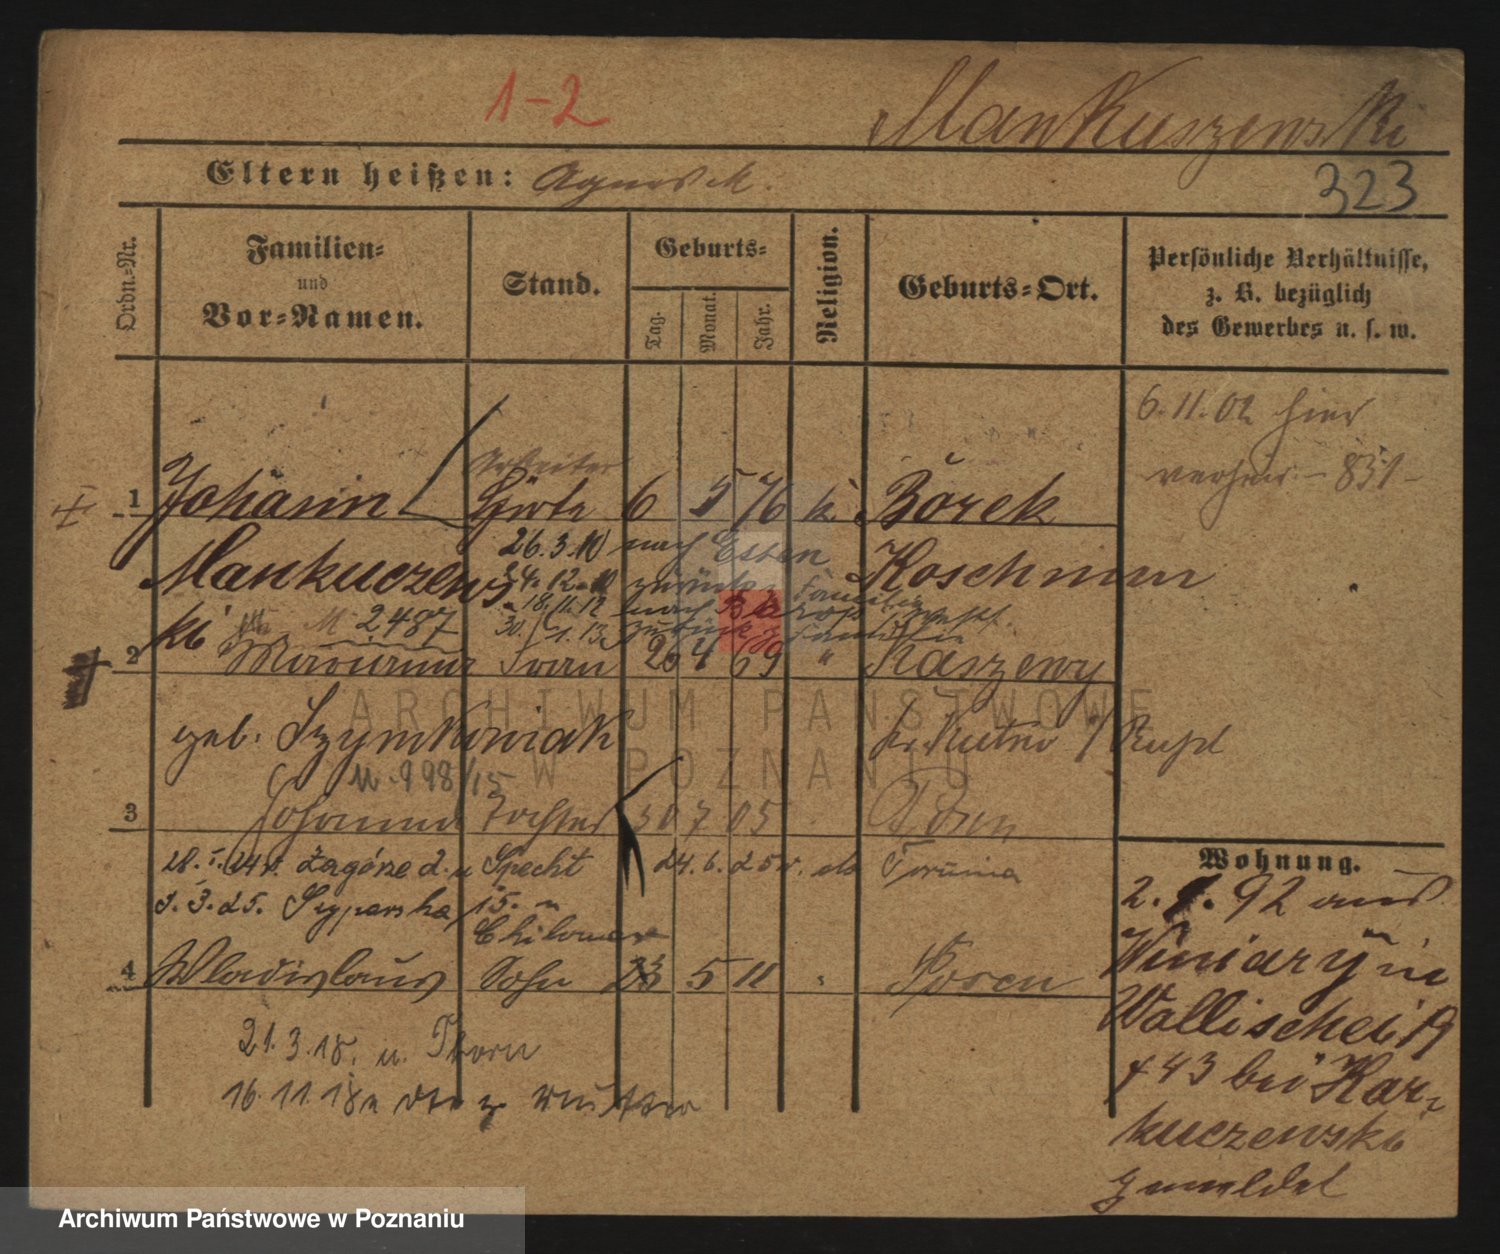 1-2
Mankuszewski
Eltern heißen: Agnes
323
Ordn.-Nr.
Familien-
und
Vor-Namen.
Stand.
Geburts-
Tag.
Monat.
Jahr.
Religion.
Geburts-Ort.
Persönliche Verhältnisse,
z. B. bezüglich
des Gewerbes u. s. w.
6.11.02 hier
verheir. - 831 -
Arbeiter
1 Johann 6 5 76 k Borek
26.3.10 nach Essen
Mankuczews Koschmin
24.12.10 zurück z Familie
18.11.12 nach
ki M 2487 30. 1.13. zurück z Familie
2 Marianna Frau 20 4 69 " Kaszewy
geb. Szymkowiak Kr. Kutno / Rußl
M. 998/15
3 Johanna Tochter 30 7 05 Posen
Wohnung.
Zagórze 2. u Specht 24.6.25 v. Torunia
2. . 92 aus
3.25.
Winiary in
4 Wladislaus Sohn 23 5 11 " Posen
Wallischei 19
21.3.18. n. Thorn
+ 43 bei Kar-
16.11.18
kuczewski
gemeldet
ARCHIWUM PAŃSTWOWE
W POZNANIU
Archiwum Państwowe w Poznaniu